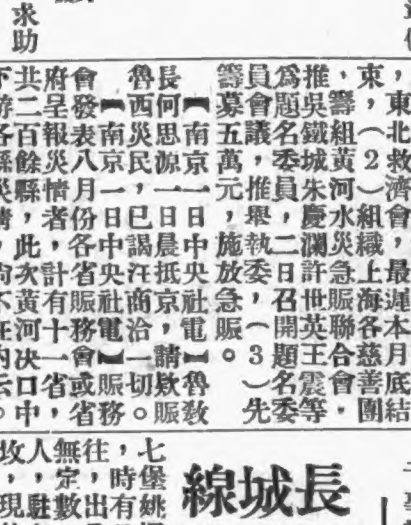 求助
，東北救濟會，最遲本月底結
束，（2）組織上海各慈善團
、籌組黃河水災急賑聯合會．
推吳鐵城朱慶瀾許世英王震等
爲題名委員，二日召開題名委
員會議，推舉執委，（3）先
籌募五萬元，施放急賑。
【南京一日中央社電】魯敎
長何思源一日晨抵京，請欵賑
魯西災民，已謁汪商洽一切。
【南京一日中央社電】賑務
會發表八月份各省賑務會或省
府呈報災情者，計有十一省，
共二百餘縣，此次黃河决口中
下游各縣災情，尙不在內云。
長城線
七堡姚
，時有
往，出
無定數
人，駐
攻，現